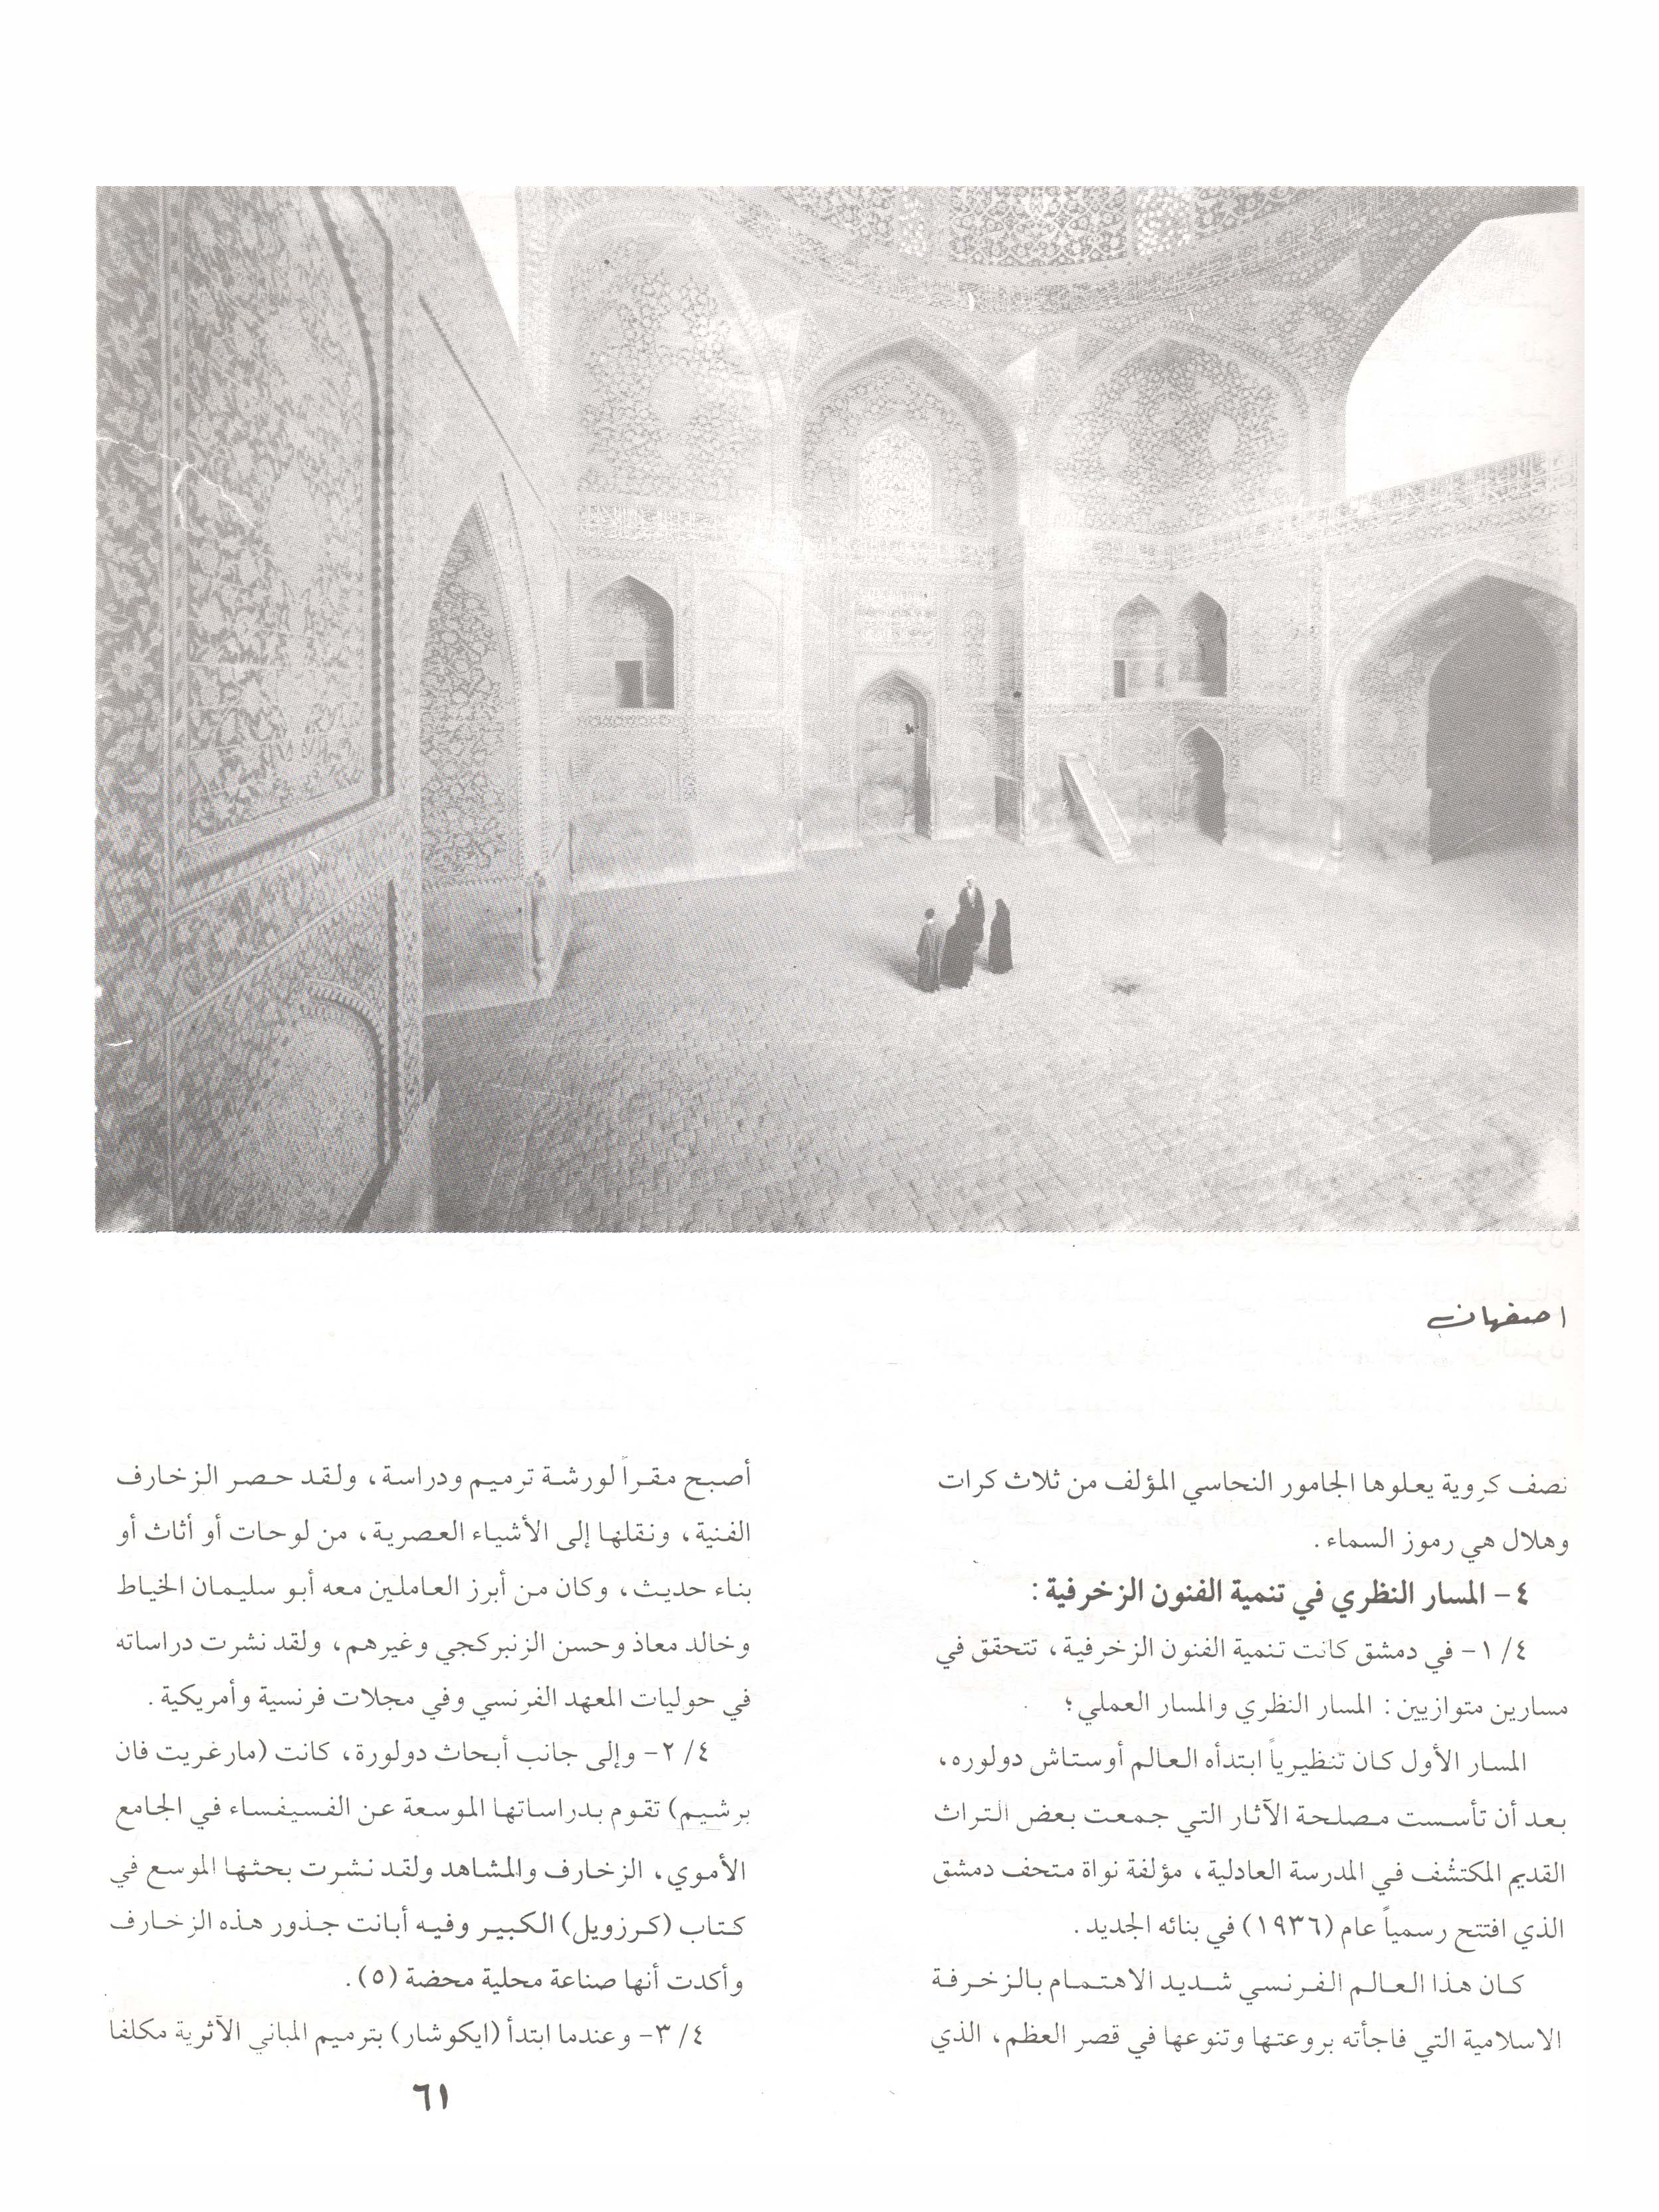 اصفهان
نصف كروية يعلوها الجامور النحاسي المؤلف من ثلاث كرات
وهلال هي رموز السماء .
٤ - المسار النظري في تنمية الفنون الزخرفية :
٤/ ١- في دمشق كانت تنمية الفنون الزخرفية، تتحقق في
مسارين متوازيين : المسار النظري والمسار العملي؛
المسار الأول كان تنظيرياً ابتدأه العالم أوستاش دولوره،
بعد أن تأسست مصلحة الآثار التي جمعت بعض التراث
القديم المكتشف في المدرسة العادلية، مؤلفة نواة متحف دمشق
الذي افتتح رسمياً عام (١٩٣٦) في بنائه الجديد .
كان هذا العالم الفرنسي شديد الاهتمام بالزخرفة
الاسلامية التي فاجأته بروعتها وتنوعها في قصر العظم، الذي
أصبح مقراً لورشة ترميم ودراسة، ولقد حصر الزخارف
الفنية، ونقلها إلى الأشياء العصرية، من لوحات أو أثاث أو
بناء حديث، وكان من أبرز العاملين معه أبو سليمان الخياط
وخالد معاذ وحسن الزنبركجي وغيرهم، ولقد نشرت دراساته
في حوليات المعهد الفرنسي وفي مجلات فرنسية وأمريكية .
٤/ ٢- وإلى جانب أبحاث دولورة، كانت (مارغريت فان
برشيم) تقوم بدراساتها الموسعة عن الفسيفساء في الجامع
الأموي، الزخارف والمشاهد ولقد نشرت بحثها الموسع في
كتاب (كرزويل) الكبير وفيه أبانت جذور هذه الزخارف
وأكدت أنها صناعة محلية محضة (٥).
٤/ ٣- وعندما ابتدأ (ايكوشار) بترميم المباني الآثرية مكلفا
٦١